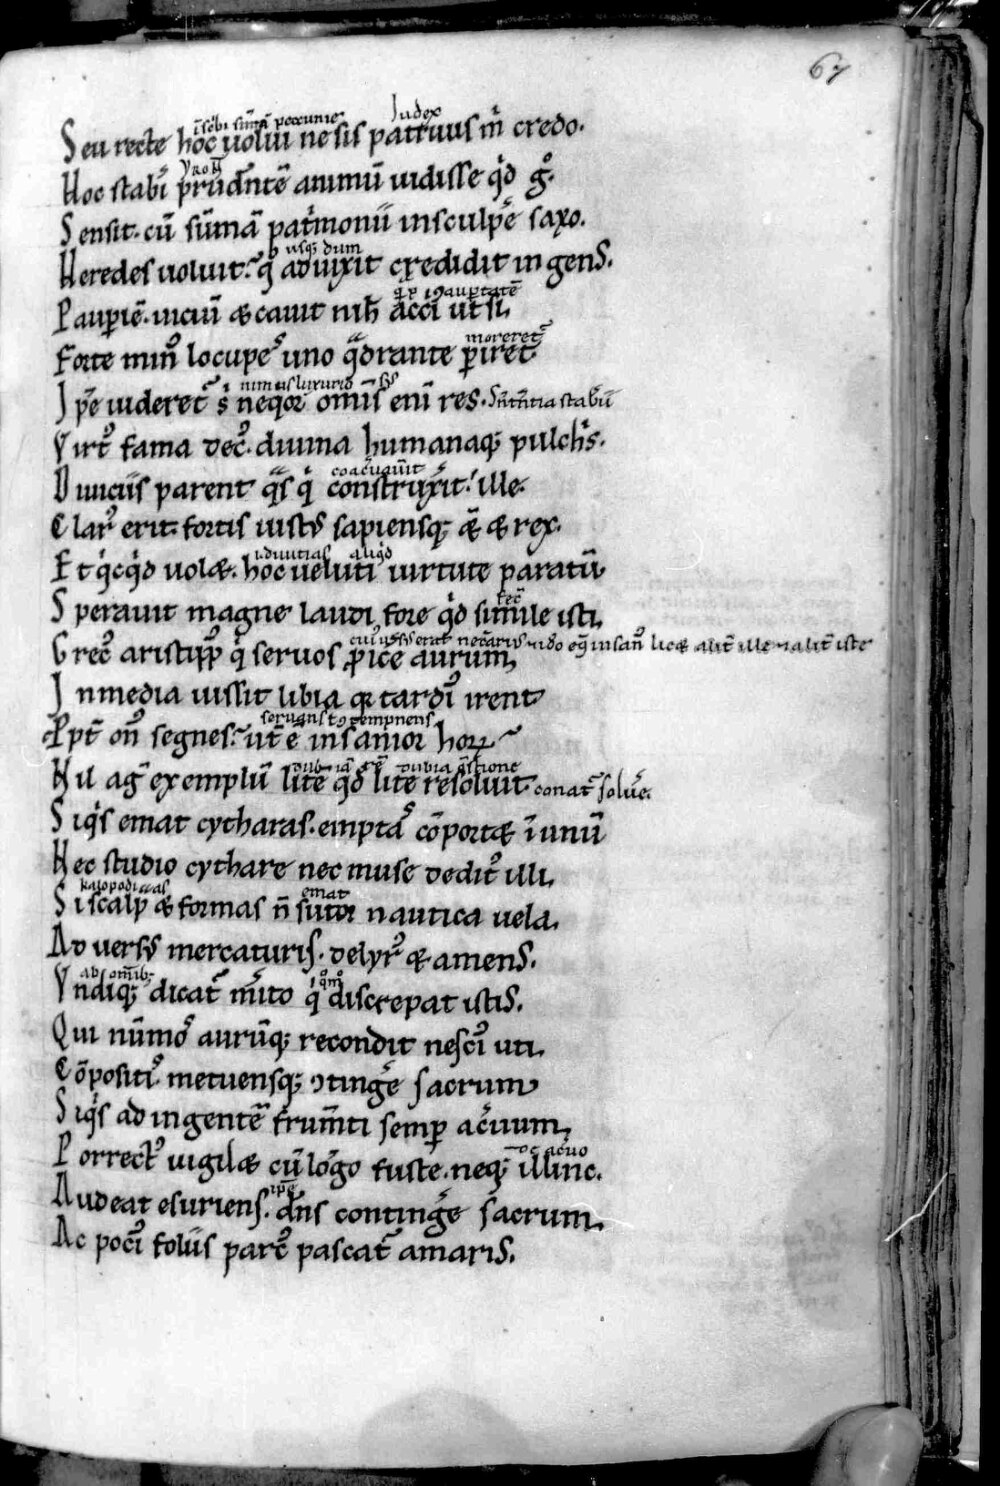 67
Index
īscbi sūmā peccunie
Seu recte hoc uolui ne sis patruus m̄ credo.
Hoc stabī prudn̄tē animū uidisse qd̄ g°.
Sensit. cū sūmā patⁱmonii insculpē saxo.
usq; dum
Heredes uoluit. q° aduixit credidit ingens.
Paupiē. uiciū & cauit nih̄ acci ut si,
moreret̄
Forte min° locupes uno qᵃdrante piret
nimius luxurio
Ipē uideret̄ sⁱ neqor omīs enī res. Sn̄tn̄tia stabīi
Virt° fama dec°. diuina humanaq; pulchⁱs.
coac̄uauit
Diuiciis parent qᵃs qⁱ construxit. ille.
Clar° erit. fortis iustus sapiensq; & & rex.
i. diuitias aliqd
Et qⁱcqⁱd uol&. hoc ueluti uirtute paratū
Sperauit magne laudi fore qd simile isti,
Grec° aristipp° qⁱ seruos p̄icē aurum,
In media iussit libia q tardi° irent
seruans ɔtempnens
Ppt̄ on° segnes. ut̄ ē insanior hoꝝ
dubiā rē dubia q̄stione
Nil agⁱ exemplū litē qd lite resoluit. conat̄ soluē.
Siqⁱs emat cytharas. emptas cōport& ī unū
Nec studio cythare nec muse dedit° illi,
kalopodicas
emat
Si scalp & formas n̄ sutor nautica uela,
Aduersus mercaturis. delyr° & amens.
ab omīb;
Vndiq; dicat̄ mⁱito qⁱ discrepat istis.
Qui nūmos aurūq; recondit nesci° uti,
Cōpositi°. metuensq; ɔtingē sacrum
Siqⁱs ad ingentē frumīti semp ac̄uum,
ac̄uo
Porrect° uigil& cū lōgo fuste. neq; illinc.
ipē
Audeat esuriens. dn̄s contingē sacrum,
Ac poci° foliis parc° pascat̄ amaris.